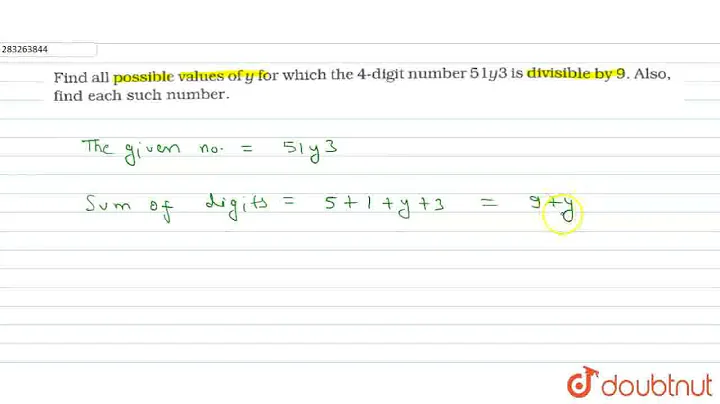 283263844
Find all possible values of y for which the 4-digit number 51y3 is divisible by 9. Also,
find each such number.
The given no. = 51y3
Sum of digits = 5+1+y+3 = 9+y
doubtnut